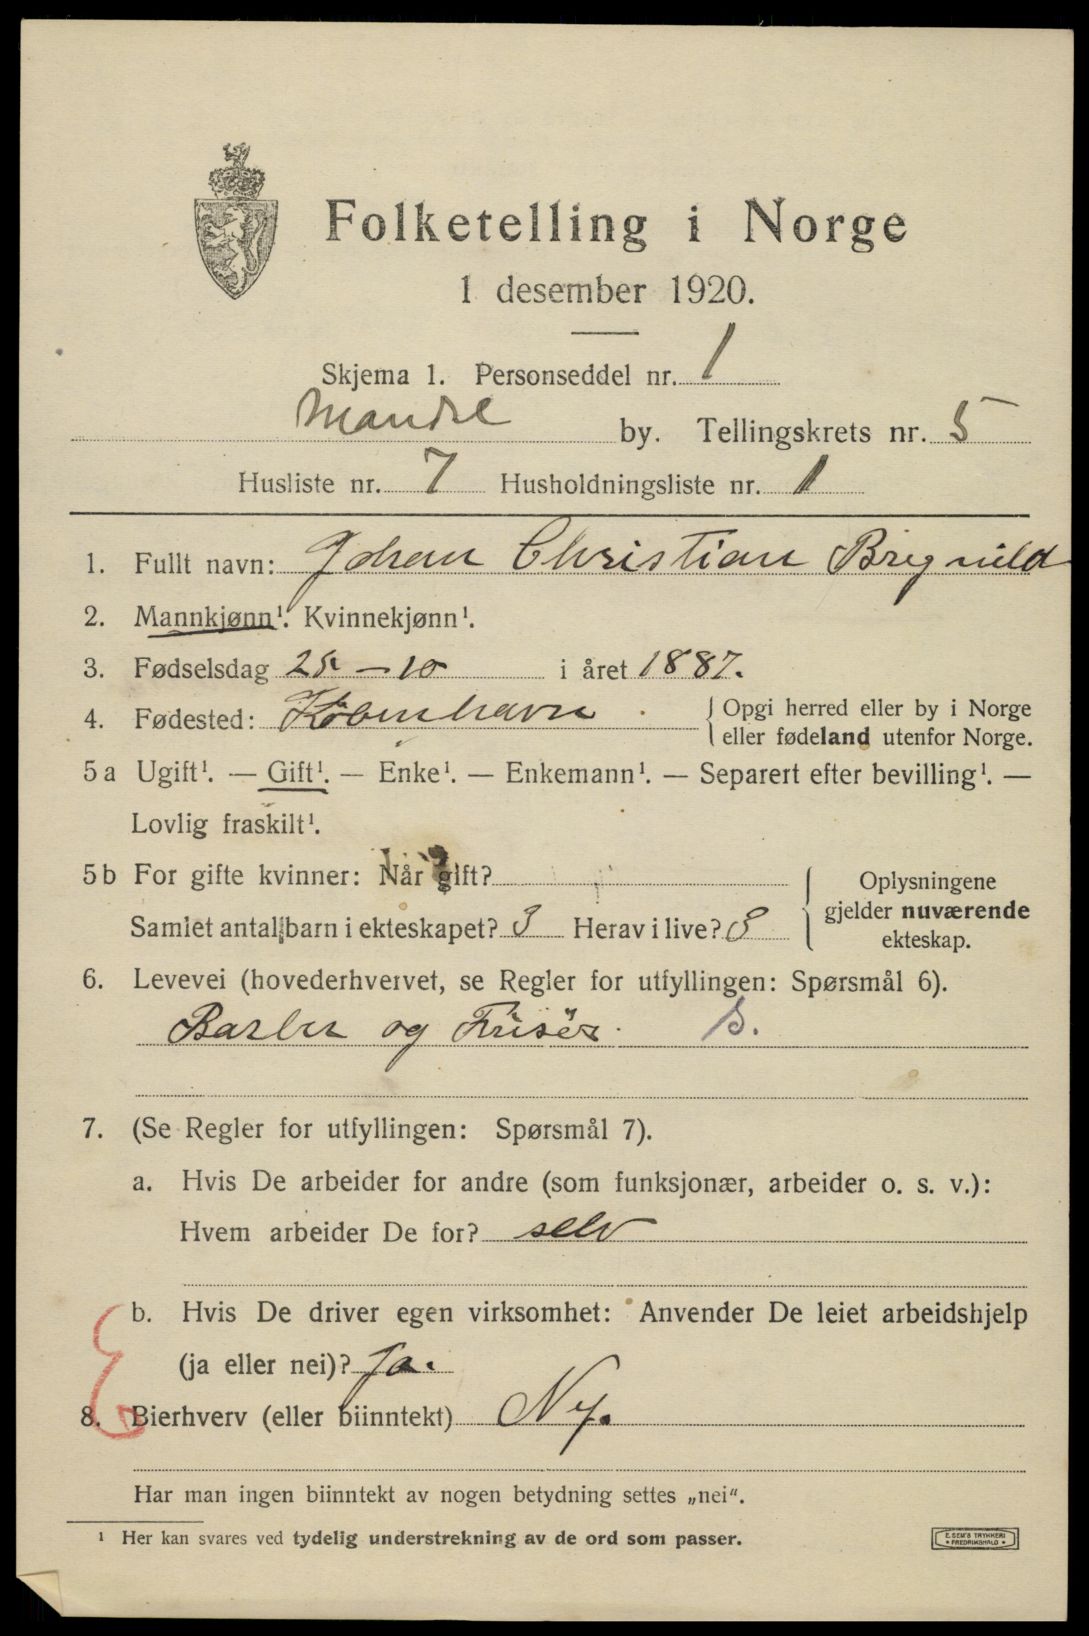 Folketelling i Norge
1 desember 1920.
Skjema 1. Personseddel nr. 1
Mandal by. Tellingskrets nr. 5
Husliste nr. 7 Husholdningsliste nr. 1
1. Fullt navn: Johan Christian Bregnild
2. Mannkjønn¹. Kvinnekjønn¹.
3. Fødselsdag 25 – 10 i året 1887.
4. Fødested: København. { Opgi herred eller by i Norge
eller fødeland utenfor Norge.
5a Ugift¹. — Gift¹. — Enke¹. — Enkemann¹. — Separert efter bevilling¹. —
Lovlig fraskilt¹.
5b For gifte kvinner: Når gift?
Samlet antal barn i ekteskapet? 3 Herav i live? 3
{ Oplysningene
gjelder nuværende
ekteskap.
6. Levevei (hovederhvervet, se Regler for utfyllingen: Spørsmål 6).
Barber og Frisør.
7. (Se Regler for utfyllingen: Spørsmål 7).
a. Hvis De arbeider for andre (som funksjonær, arbeider o. s. v.):
Hvem arbeider De for? selv
b. Hvis De driver egen virksomhet: Anvender De leiet arbeidshjelp
(ja eller nei)? Ja.
8. Bierhverv (eller biinntekt) Ny.
Har man ingen biinntekt av nogen betydning settes „nei“.
¹ Her kan svares ved tydelig understrekning av de ord som passer.
E. SEM'S TRYKKERI
• FREDRIKSHALD •